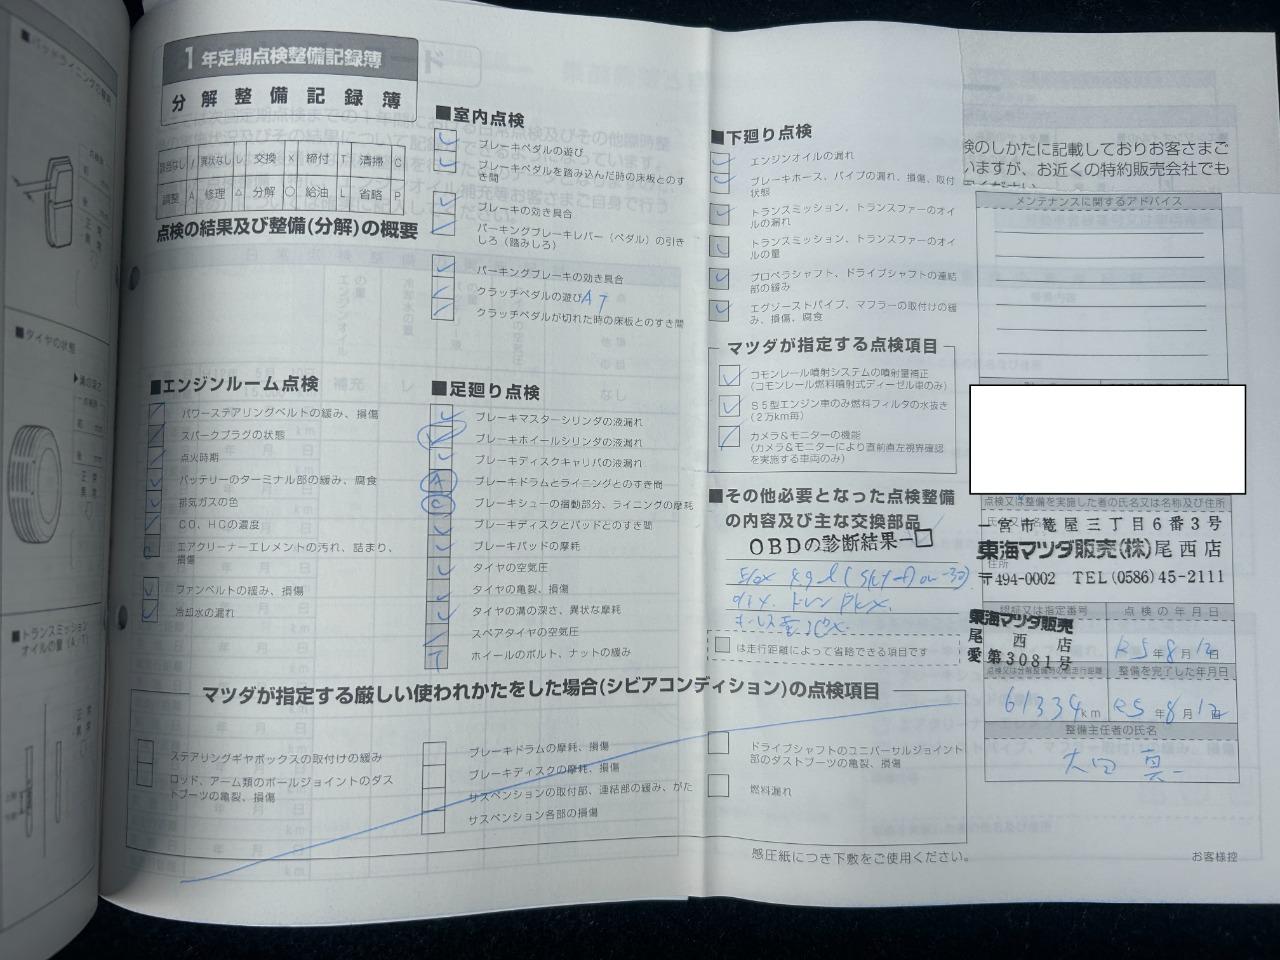 1年定期点検整備記録簿
分解整備記録簿
該当なし / 異状なし レ 交換 × 締付 T 清掃 C
調整 A 修理 △ 分解 ○ 給油 L 省略 P
点検の結果及び整備(分解)の概要
■エンジンルーム点検
パワーステアリングベルトの緩み、損傷
スパークプラグの状態
点火時期
バッテリーのターミナル部の緩み、腐食
排気ガスの色
CO、HCの濃度
エアクリーナーエレメントの汚れ、詰まり、
損傷
ファンベルトの緩み、損傷
冷却水の漏れ
■室内点検
ブレーキペダルの遊び
ブレーキペダルを踏み込んだ時の床板とのす
き間
ブレーキの効き具合
パーキングブレーキレバー(ペダル)の引き
しろ(踏みしろ)
パーキングブレーキの効き具合
クラッチペダルの遊び AT
クラッチペダルが切れた時の床板とのすき間
■足廻り点検
ブレーキマスターシリンダの液漏れ
ブレーキホイールシリンダの液漏れ
ブレーキディスクキャリパの液漏れ
A ブレーキドラムとライニングとのすき間
C ブレーキシューの摺動部分、ライニングの摩耗
ブレーキディスクとパッドとのすき間
ブレーキパッドの摩耗
タイヤの空気圧
タイヤの亀裂、損傷
タイヤの溝の深さ、異状な摩耗
スペアタイヤの空気圧
T ホイールのボルト、ナットの緩み
■下廻り点検
エンジンオイルの漏れ
ブレーキホース、パイプの漏れ、損傷、取付
状態
トランスミッション、トランスファーのオイ
ルの漏れ
トランスミッション、トランスファーのオイ
ルの量
プロペラシャフト、ドライブシャフトの連結
部の緩み
エグゾーストパイプ、マフラーの取付けの緩
み、損傷、腐食
マツダが指定する点検項目
コモンレール噴射システムの噴射量補正
(コモンレール燃料噴射式ディーゼル車のみ)
S5型エンジン車のみ燃料フィルタの水抜き
(2万km毎)
カメラ&モニターの機能
(カメラ&モニターにより直前直左視界確認
を実施する車両のみ)
■その他必要となった点検整備
の内容及び主な交換部品
OBDの診断結果-□
は走行距離によって省略できる項目です
マツダが指定する厳しい使われかたをした場合(シビアコンディション)の点検項目
ステアリングギヤボックスの取付けの緩み
ロッド、アーム類のボールジョイントのダス
トブーツの亀裂、損傷
ブレーキドラムの摩耗、損傷
ブレーキディスクの摩耗、損傷
サスペンションの取付部、連結部の緩み、がた
サスペンション各部の損傷
ドライブシャフトのユニバーサルジョイント
部のダストブーツの亀裂、損傷
燃料漏れ
感圧紙につき下敷をご使用ください。
お客様控
検のしかたに記載しておりお客さまご
いますが、お近くの特約販売会社でも
メンテナンスに関するアドバイス
点検又は整備を実施した者の氏名又は名称及び住所
一宮市篭屋三丁目6番3号
東海マツダ販売(株)尾西店
住所
〒494-0002 TEL(0586)45-2111
認証又は指定番号
点検の年月日
東海マツダ販売
尾西店
愛第3081号
R5年8月12日
整備を完了した年月日
61334km
R5年8月12日
整備主任者の氏名
■タイヤの状態
■トランスミッション
オイルの量(A/T)